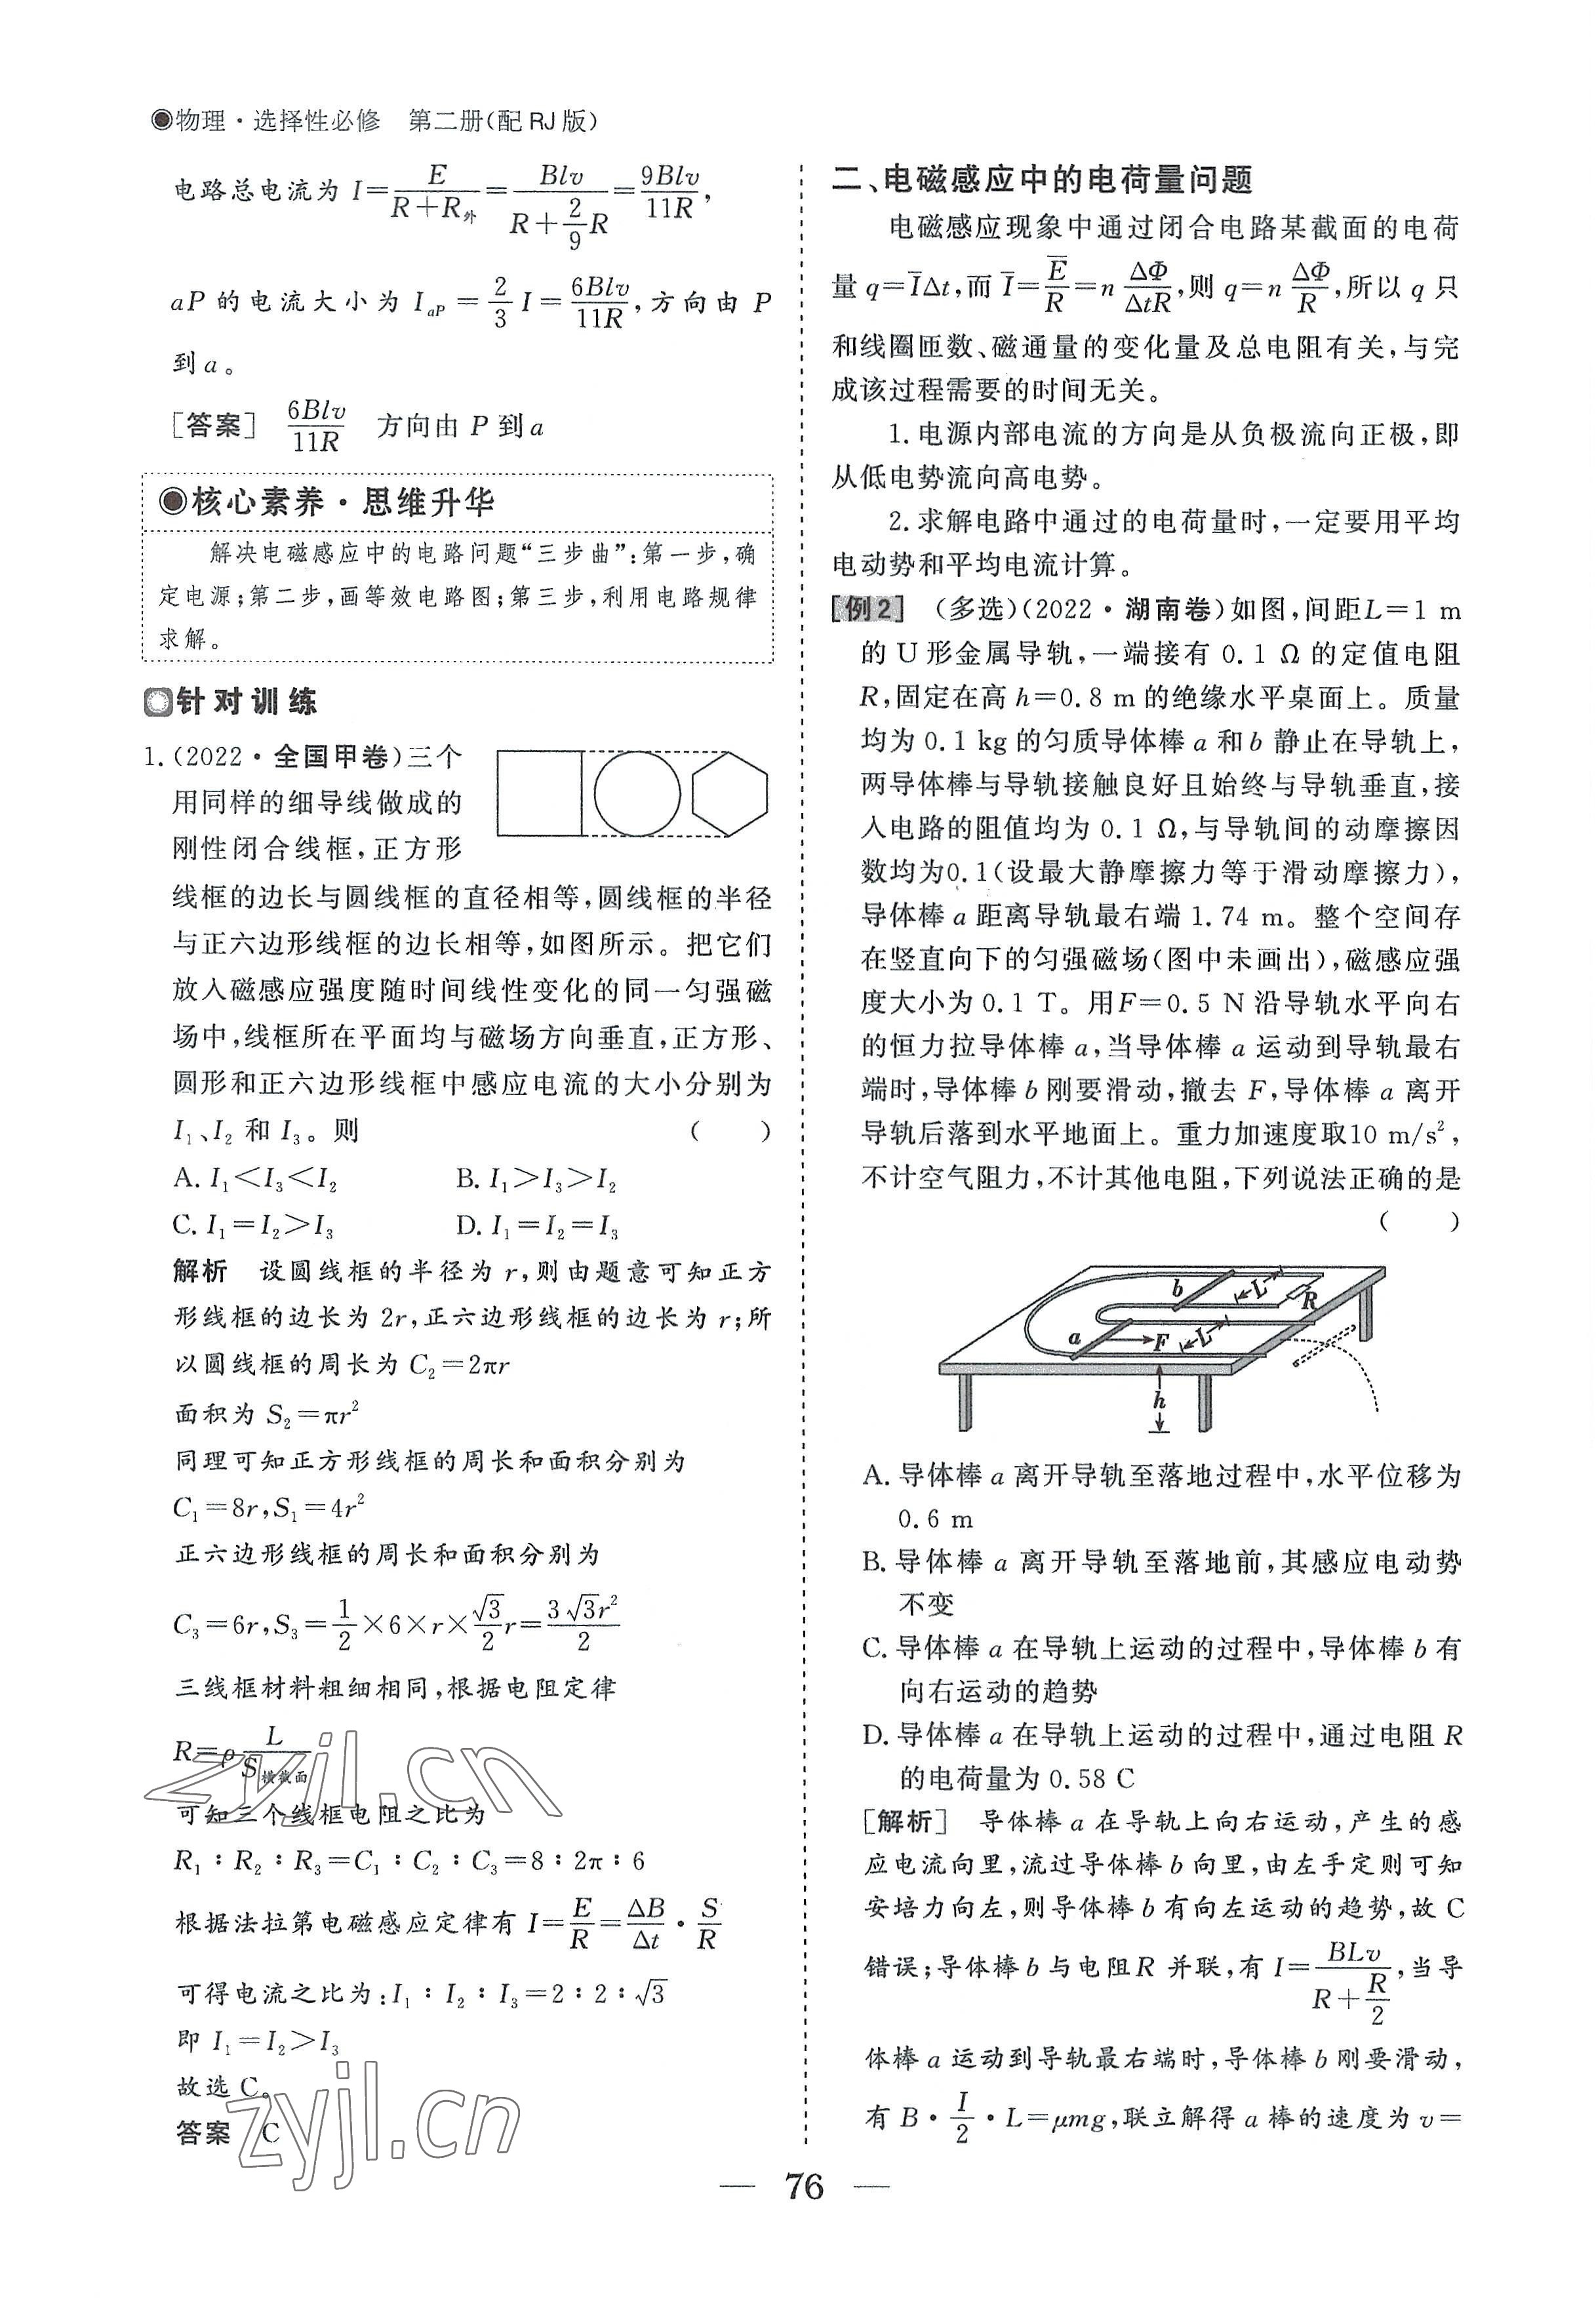 ◉物理·选择性必修　第二册(配RJ版)
电路总电流为 I=E/(R+R外)=Blv/(R+(2/9)R)=9Blv/11R,
aP 的电流大小为 I_aP=(2/3)I=6Blv/11R,方向由 P
到a。
[答案]　6Blv/11R　方向由 P 到a
◉核心素养·思维升华
解决电磁感应中的电路问题“三步曲”:第一步,确
定电源;第二步,画等效电路图;第三步,利用电路规律
求解。
针对训练
1.(2022·全国甲卷)三个
用同样的细导线做成的
刚性闭合线框,正方形
线框的边长与圆线框的直径相等,圆线框的半径
与正六边形线框的边长相等,如图所示。把它们
放入磁感应强度随时间线性变化的同一匀强磁
场中,线框所在平面均与磁场方向垂直,正方形、
圆形和正六边形线框中感应电流的大小分别为
I₁、I₂ 和 I₃。则　(　　)
A. I₁<I₃<I₂　B. I₁>I₃>I₂
C. I₁=I₂>I₃　D. I₁=I₂=I₃
解析　设圆线框的半径为 r,则由题意可知正方
形线框的边长为 2r,正六边形线框的边长为 r;所
以圆线框的周长为 C₂=2πr
面积为 S₂=πr²
同理可知正方形线框的周长和面积分别为
C₁=8r,S₁=4r²
正六边形线框的周长和面积分别为
C₃=6r,S₃=1/2×6×r×(√3/2)r=3√3r²/2
三线框材料粗细相同,根据电阻定律
R=ρL/S横截面
可知三个线框电阻之比为
R₁∶R₂∶R₃=C₁∶C₂∶C₃=8∶2π∶6
根据法拉第电磁感应定律有 I=E/R=ΔB/Δt·S/R
可得电流之比为:I₁∶I₂∶I₃=2∶2∶√3
即 I₁=I₂>I₃
故选 C。
答案　C
二、电磁感应中的电荷量问题
电磁感应现象中通过闭合电路某截面的电荷
量 q=I̅Δt,而 I̅=E̅/R=nΔΦ/ΔtR,则 q=nΔΦ/R,所以 q 只
和线圈匝数、磁通量的变化量及总电阻有关,与完
成该过程需要的时间无关。
1.电源内部电流的方向是从负极流向正极,即
从低电势流向高电势。
2.求解电路中通过的电荷量时,一定要用平均
电动势和平均电流计算。
[例2]　(多选)(2022·湖南卷)如图,间距L=1 m
的 U 形金属导轨,一端接有 0.1 Ω 的定值电阻
R,固定在高 h=0.8 m 的绝缘水平桌面上。质量
均为 0.1 kg 的匀质导体棒 a 和 b 静止在导轨上,
两导体棒与导轨接触良好且始终与导轨垂直,接
入电路的阻值均为 0.1 Ω,与导轨间的动摩擦因
数均为0.1(设最大静摩擦力等于滑动摩擦力),
导体棒 a 距离导轨最右端 1.74 m。整个空间存
在竖直向下的匀强磁场(图中未画出),磁感应强
度大小为 0.1 T。用F=0.5 N 沿导轨水平向右
的恒力拉导体棒 a,当导体棒 a 运动到导轨最右
端时,导体棒 b 刚要滑动,撤去 F,导体棒 a 离开
导轨后落到水平地面上。重力加速度取10 m/s²,
不计空气阻力,不计其他电阻,下列说法正确的是
(　　)
b　L　R
a　F　L
h
A. 导体棒 a 离开导轨至落地过程中,水平位移为
0.6 m
B. 导体棒 a 离开导轨至落地前,其感应电动势
不变
C. 导体棒 a 在导轨上运动的过程中,导体棒 b 有
向右运动的趋势
D. 导体棒 a 在导轨上运动的过程中,通过电阻 R
的电荷量为 0.58 C
[解析]　导体棒 a 在导轨上向右运动,产生的感
应电流向里,流过导体棒 b 向里,由左手定则可知
安培力向左,则导体棒 b 有向左运动的趋势,故 C
错误;导体棒 b 与电阻R 并联,有 I=BLv/(R+R/2),当导
体棒 a 运动到导轨最右端时,导体棒 b 刚要滑动,
有 B·I/2·L=μmg,联立解得 a 棒的速度为 v=
zyjl.cn
zyjl.cn
— 76 —